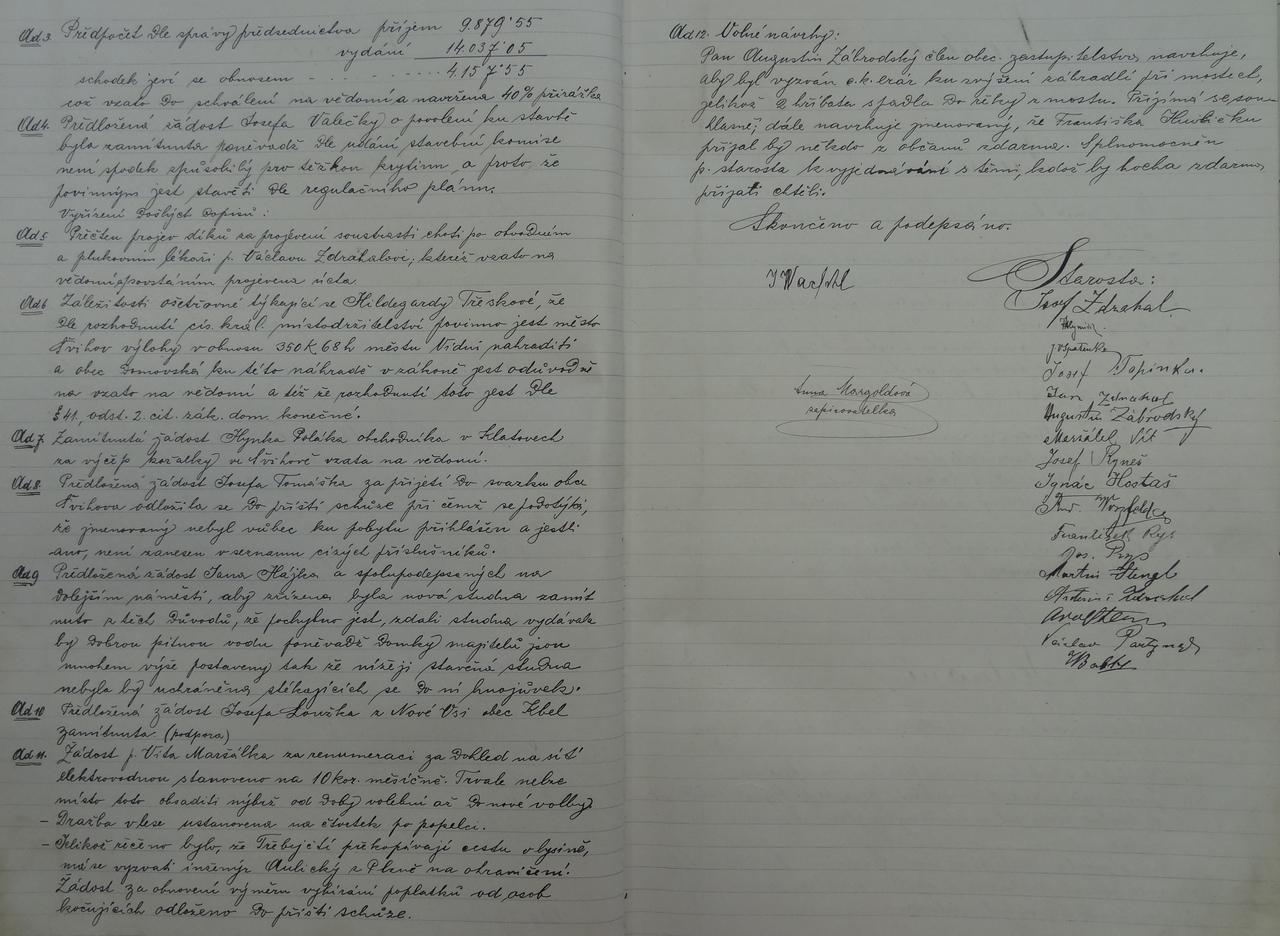 Ad 3. Předpočet dle správy předsednictva příjem 9.879·55
vydání 14.037·05
schodek jeví se obnosem - . . . . . . . 4.157·55
což vzato do schválení na vědomí a navržena 40% přirážka
Ad 4. Předložená žádost Josefa Valečky o povolení ku stavbě
byla zamítnuta poněvadž dle udání stavební komise
není spodek způsobilý pro těžkou krytinu, a proto že
povinným jest stavěti dle regulačního plánu.
Vyřízení došlých dopisů :
Ad 5 Přečten projev díků za projevení soustrasti choti po obvodním
a plukovním lékaři p. Václavu Zdrahalovi; kteréž vzato na
vědomí a povstáním projevena úcta
Ad 6 Záležitosti ošetřovné týkající se Hildegardy Třeskové, že
dle rozhodnutí cís. král. místodržitelství povinno jest město
Švihov výlohy v obnosu 350 K 68 h městu Vídni nahraditi
a obec domovská ku této náhradě v zákoně jest odůvodně
na vzato na vědomí a též že rozhodnutí toto jest dle
§ 41. odst. 2. cit. zák. dom. konečné.
Ad 7. Zamítnutá žádost Hynka Poláka obchodníka v Klatovech
za výčep kořalky ve Švihově vzata na vědomí.
Ad 8. Předložená žádost Josefa Tomáška za přijetí do svazku obce
Švihova odložila se do příští schůze při čemž se podotýká,
že jmenovaný nebyl vůbec ku pobytu přihlášen a jestli
ano, není zanesen v seznamu cizých příslušníků.
Ad 9 Předložená žádost Jana Hájka a spolupodepsaných na
dolejším náměstí, aby zřízena byla nová studna zamít
nuto z těch důvodů, že pochybno jest, zdali studna vydávala
by dobrou pitnou vodu poněvadž domky majitelů jsou
mnohem výše postaveny tak že níže ji stavěná studna
nebyla by uchráněna stékajících se do ní hnojůvek.
Ad 10 Předložená žádost Josefa Loužka z Nové Vsi obec Kbel
zamítnuta (podpora)
Ad 11. Žádost p. Víta Maršálka za renumeraci za dohled na síť
elektrovodnou stanoveno na 10 kor. měsíčně. Trvale nelze
místo toto obsaditi nýbrž od doby volební až do nové volby
- Dražba v lese ustanovena na čtvrtek po popelci.
- Jelikož řečeno bylo, že Třebýcští překopávají cestu v lysině,
má se vyzvati inženýr Aulický z Plzně na ohraničení.
Žádost za obnovení výměru vybírání poplatků od osob
kočujících odloženo do příští schůze.
Ad 12. Volné návrhy:
Pan Augustin Zábrodský člen obec. zastupitelstva navrhuje,
aby byl vyzván c.k. erár ku zvýšení zábradlí při mostech,
jelikož 2 hříbata spadla do řeky z mostu. Přijímá se sou-
hlasně; dále navrhuje jmenovaný, že Františka Hrubičku
přijal by někdo z občanů zdarma. Splnomocněn
p. starosta k vyjednávání s těmi, kdož by hocha zdarma
přijati chtěli.
Skončeno a podepsáno.
Starosta:
Josef Zdrahal
Josef Topinka.
Jan Zdrahal
Augustin Zábrodský
Maršálek Vít
Josef Ryneš
Ignác Hostaš
František Ryš
Martin Štengl
Antonín Zdrahal
Václav
Anna Margoldová
zapisovatelka